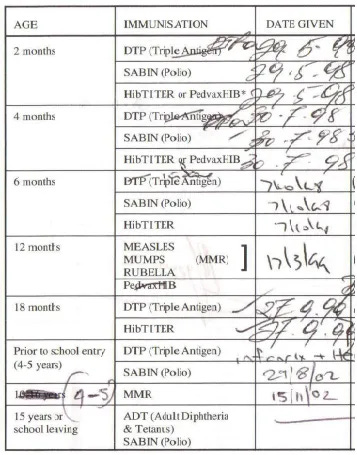 AGE IMMUNISATION DATE GIVEN
2 months DTP (Triple Antigen) 29.5.98
SABIN (Polio) 29.5.98
HibTITER or PedvaxHIB* 29.5.98
4 months DTP (Triple Antigen) 30.7.98
SABIN (Polio) 30.7.98
HibTITER or PedvaxHIB 30.7.98
6 months DTP (Triple Antigen) 7/10/98
SABIN (Polio) 7/10/98
HibTITER 7/10/98
12 months MEASLES
MUMPS (MMR) ] 17/3/99
RUBELLA
PedvaxHIB
18 months DTP (Triple Antigen) 27.9.99
HibTITER 27.9.99
Prior to school entry DTP (Triple Antigen) infanrix +
(4-5 years) SABIN (Polio) 29/8/02
(4-5) MMR 15/11/02
15 years or ADT (Adult Diphtheria
school leaving & Tetanus)
SABIN (Polio)